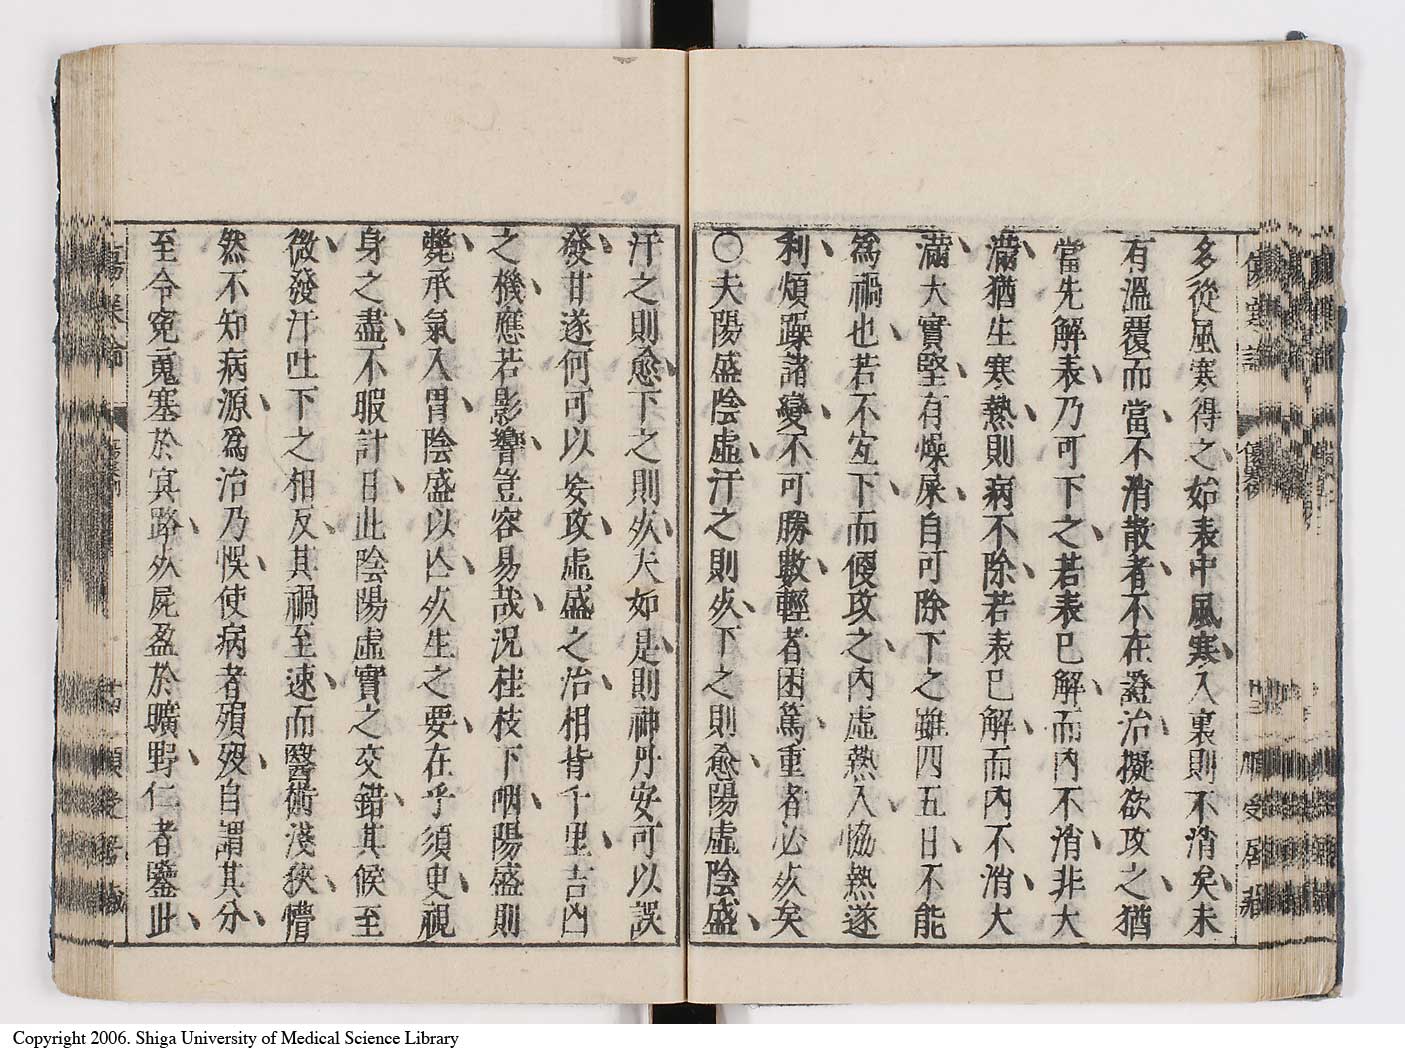 多從風寒得之、始表中風寒、入裏則不消矣、未
有溫覆而當、不消散者、不在證治、擬欲攻之、猶
當先解表、乃可下之、若表已解、而內不消、非大
滿、猶生寒熱、則病不除、若表已解、而內不消、大
滿、大實、堅、有燥屎、自可除下之、雖四五日、不能
爲禍也、若不宜下、而便攻之、內虛熱入、協熱遂
利、煩躁、諸變、不可勝數、輕者困篤、重者必死矣
○夫陽盛陰虛、汗之則死、下之則愈、陽虛陰盛、
汗之則愈、下之則死、夫如是、則神丹安可以誤
發、甘遂何可以妄攻、虛盛之治、相背千里、吉凶
之機、應若影響、豈容易哉、況桂枝下咽、陽盛則
斃、承氣入胃、陰盛以亾、死生之要、在乎須臾、視
身之盡、不暇計日、此陰陽虛實之交錯、其候至
微、發汗吐下之相反、其禍至速、而醫術淺狹、懵
然不知病源、爲治乃悞、使病者殞歿、自謂其分、
至令冤䰟塞於冥路、死屍盈於曠野、仁者鑒此、
傷寒論
傷寒例
十三
傷寒論
傷寒例
十四